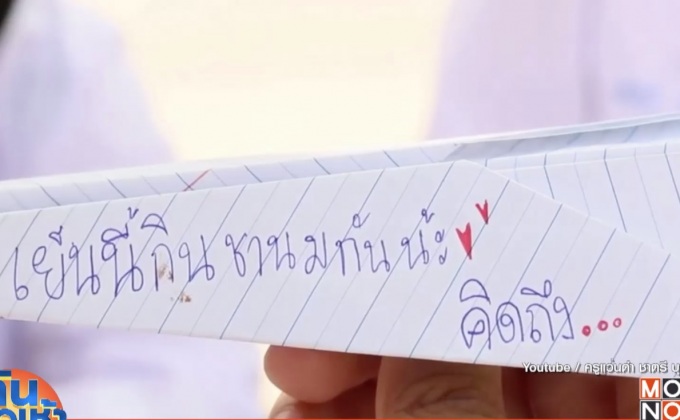 เย็นนี้กินชานมกันน้ะ
คิดถึง...
Youtube / ครูแว่นดำ ชาตรี
MO
NO